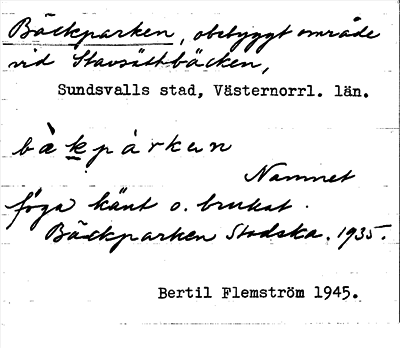 Bäckparken, obebyggt område
vid Stavsättbäcken,
Sundsvalls stad, Västernorrl. län.
bàkpárkan
Namnet
föga känt o. brukat.
Bäckparken Stadska. 1935.
Bertil Flemström 1945.